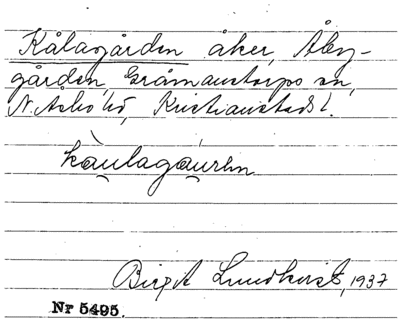 Kålagården åker, Åby-
gården, Gråmanstorps sn,
N. Åsbo hd, Kristianstads l.
Birgit Lundkvist, 1937
Nr 5495.